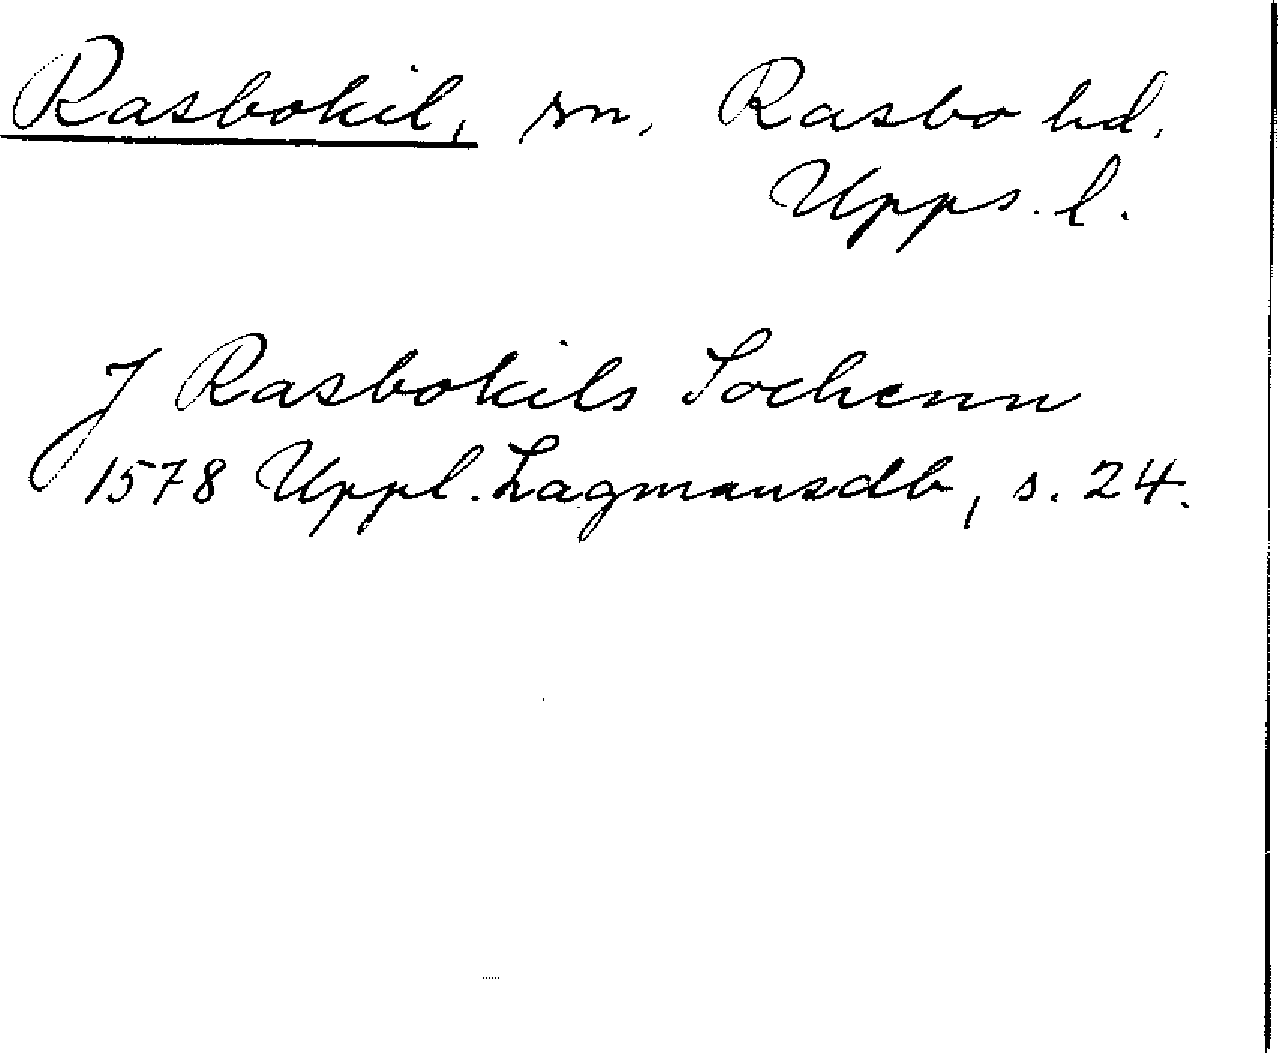 Rasbokil, sn, Rasbo hd.
Upps. l.
J Rasbokils Sochenn
1578 Uppl. Lagmansdb, s. 24.